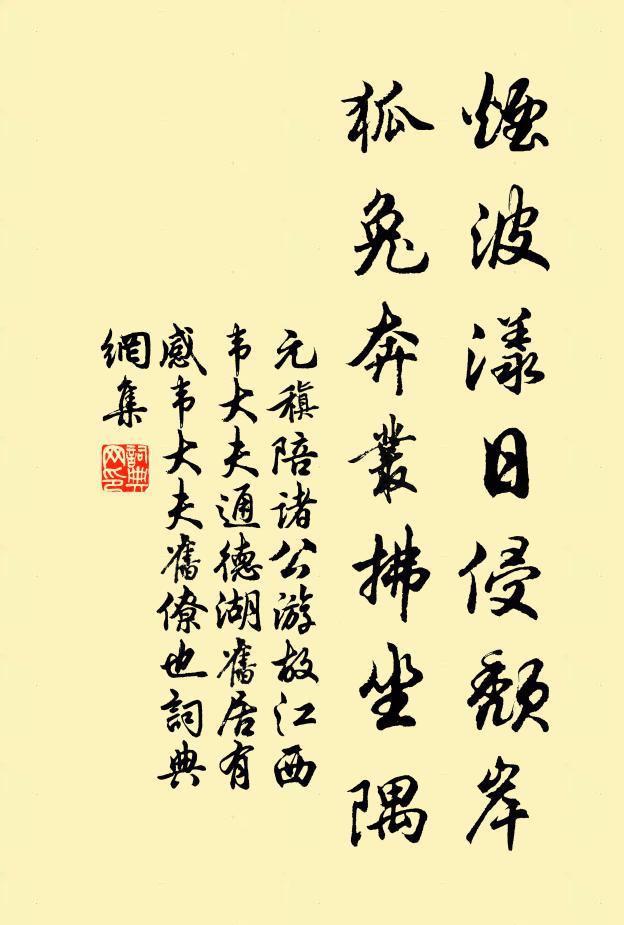 煙波漾日侵頹岸
狐兔奔叢拂坐隅
元稹陪诸公游故江西
韦大夫通德湖舊居有
感韦大夫舊僚也詞典
網集
詞典网印